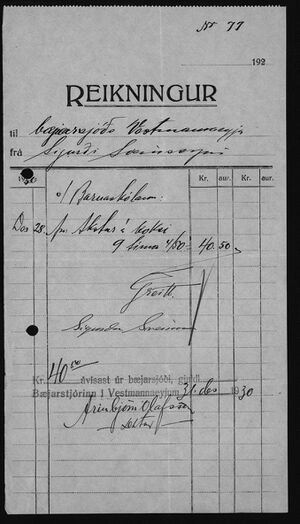 Nr 77
192
REIKNINGUR
til bæjarsjóðs Vestmannaeyja
frá Sigurði Sveinssyni
Kr. aur. Kr. aur.
1930
o/ Barnaskólans:
Des 28. fyr Akstur á koksi
9 tíma 4/50 = 40.50
Greitt
Sigurður Sveinsson
Kr. 40.50 ávísast úr bæjarsjóði, gjaldl.
Bæjarstjórinn í Vestmannaeyjum 31. des 1930
Arinbjörn Olafsson